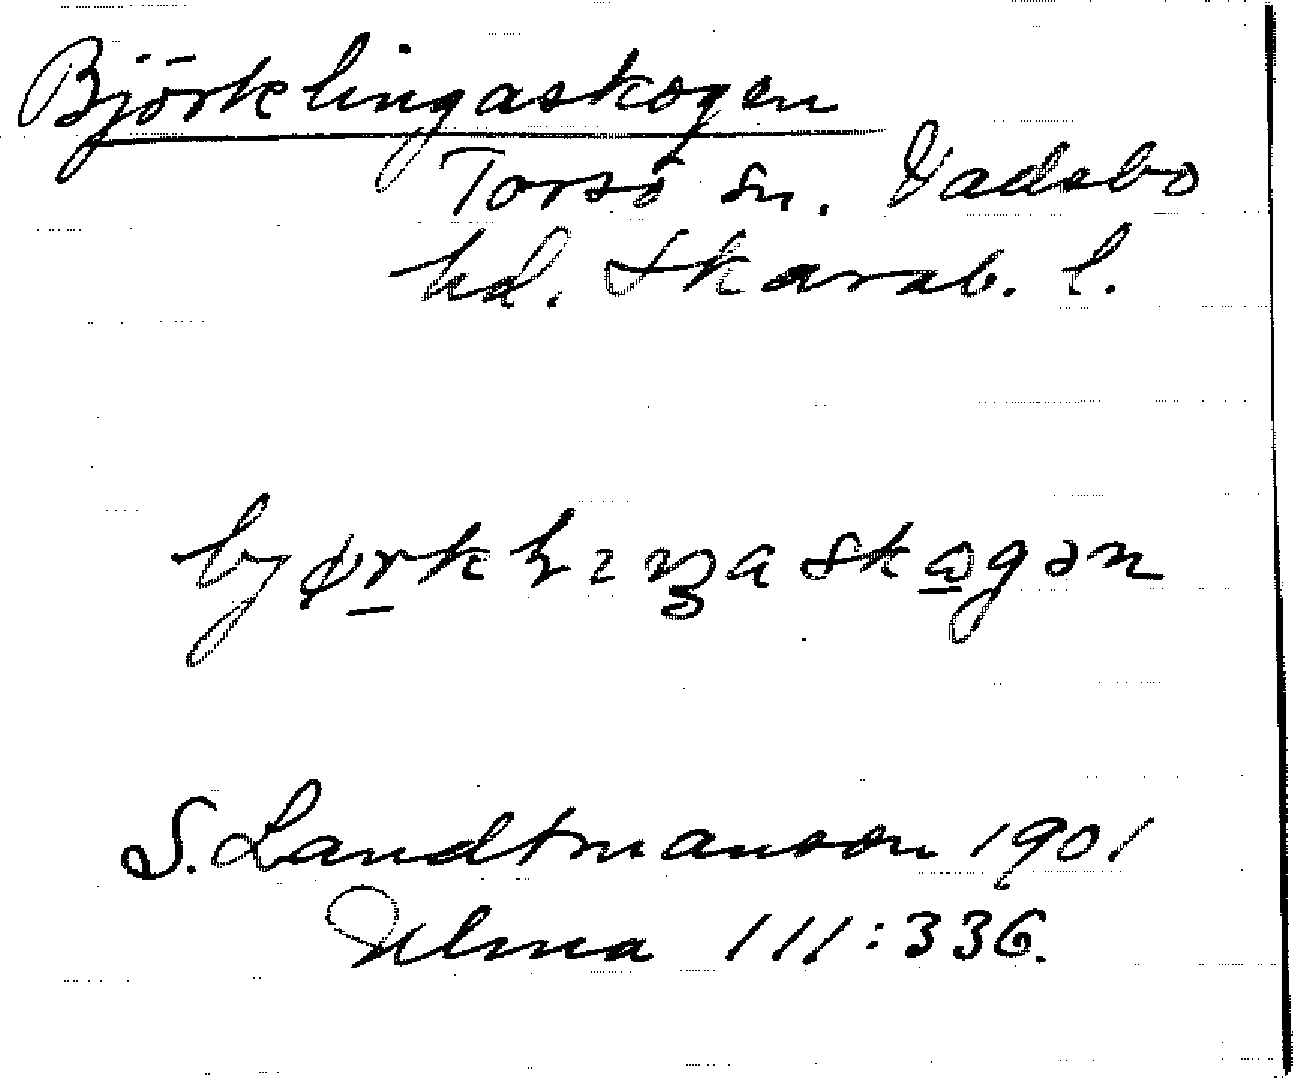 Björklingaskogen
Torsö sn. Vadsbo
hd. Skarab. l.
S. Landtmanson 1901
Ulma 111:336.